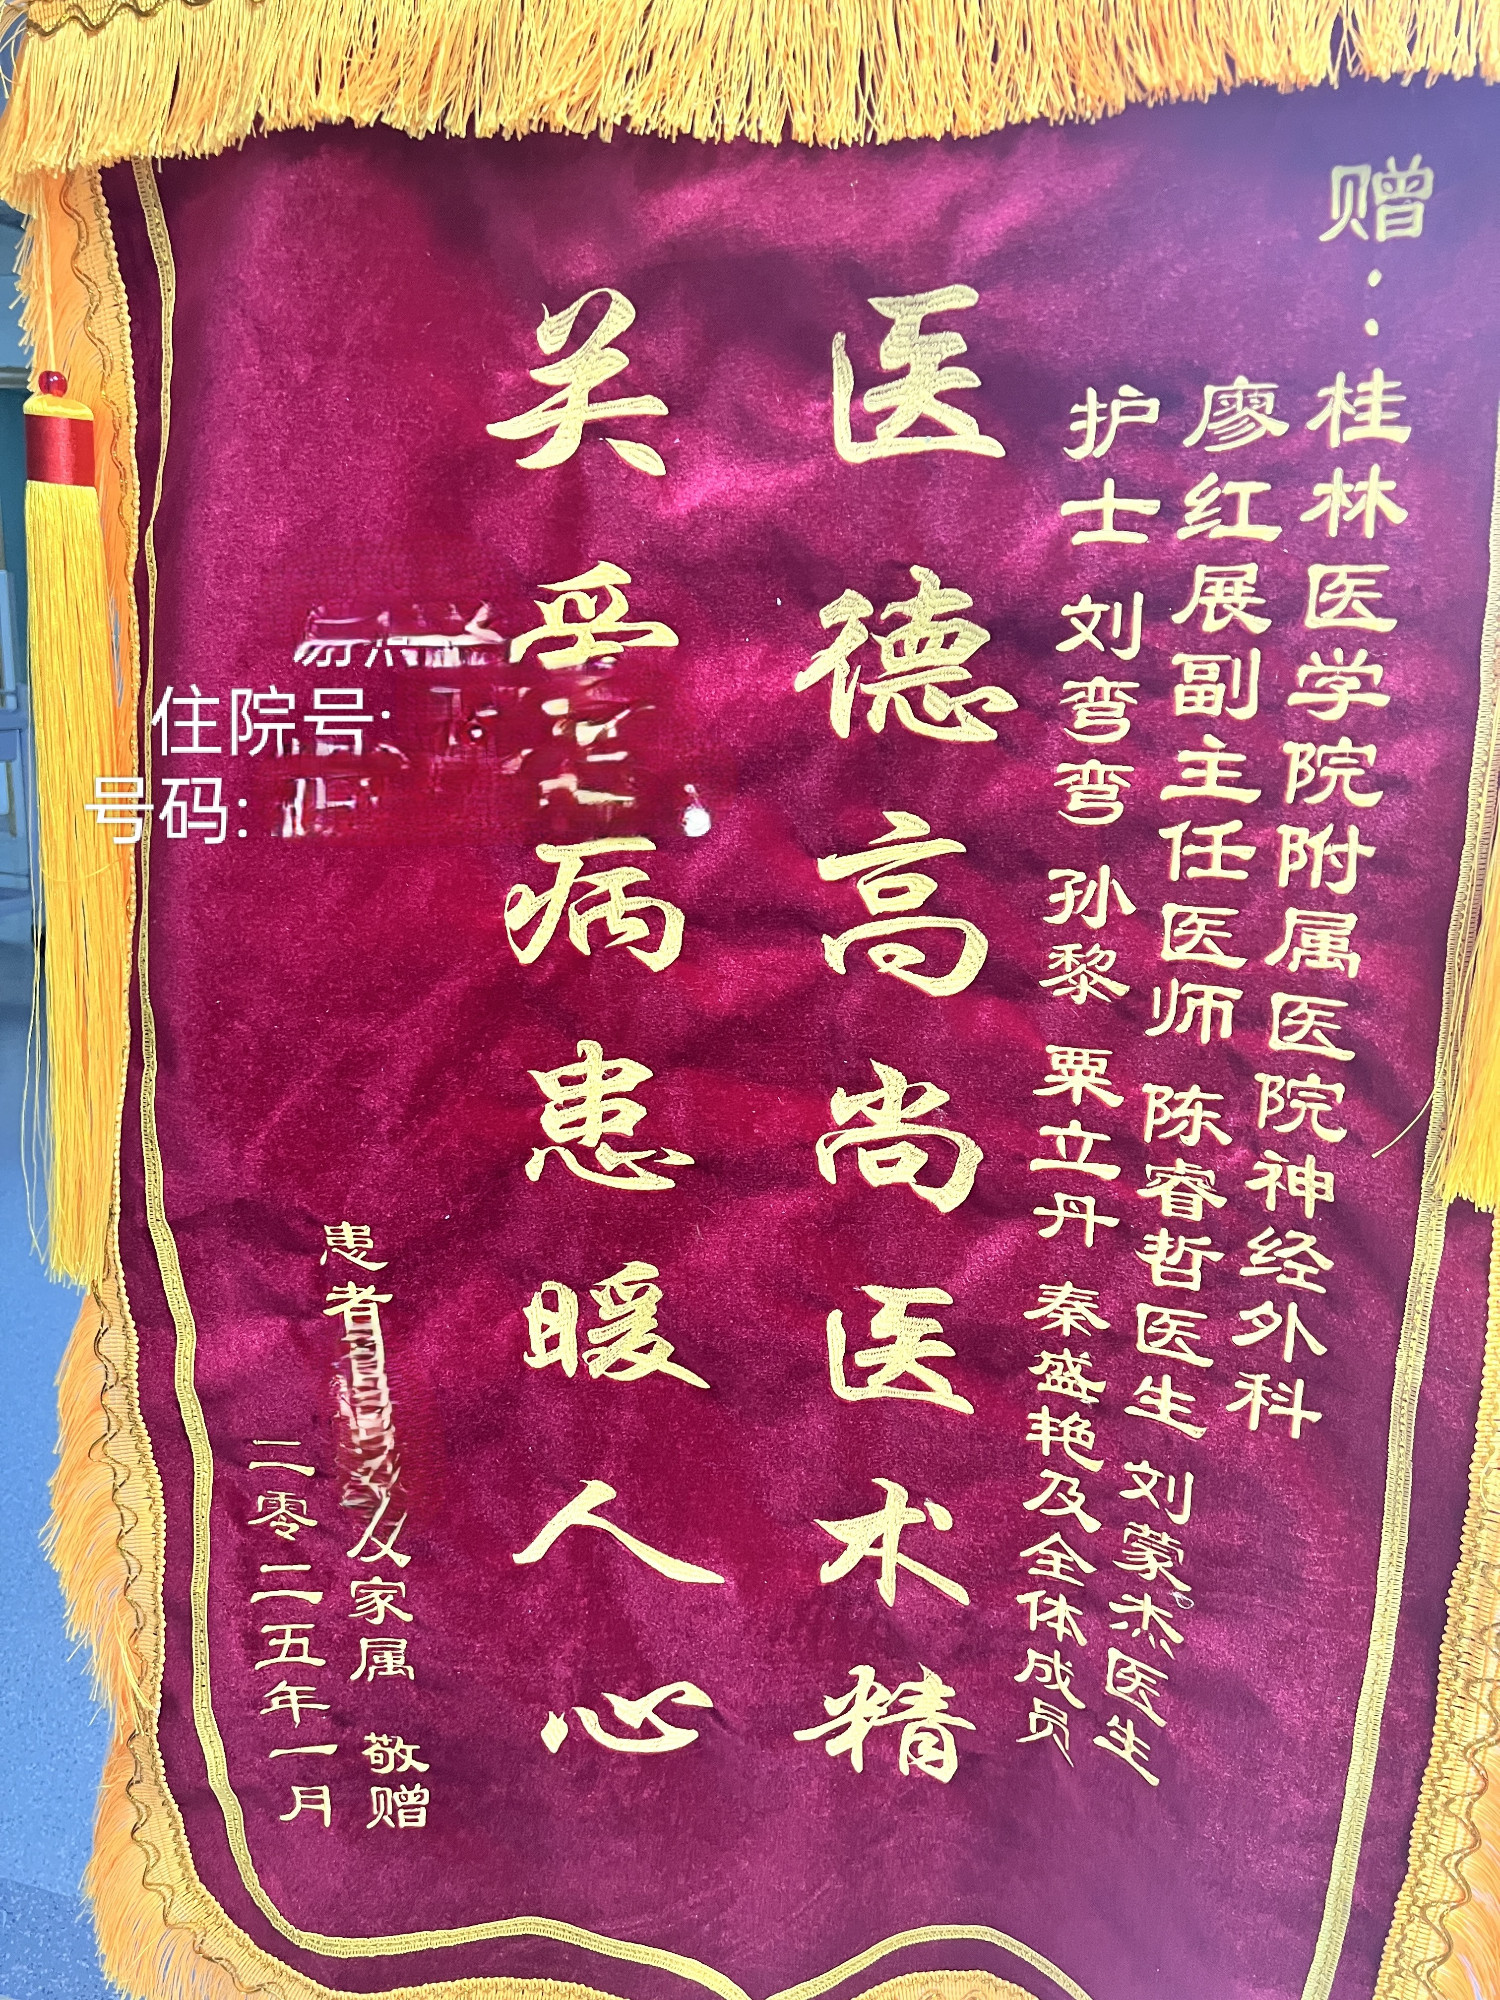 赠：
桂林医学院附属医院神经外科
廖红展副主任医师 陈睿哲医生 刘蒙杰医生
护士刘弯弯 孙黎 粟立丹 秦盛艳及全体成员
医德高尚医术精
关爱病患暖人心
患者 及家属 敬赠
二零二五年一月
住院号:
号码: